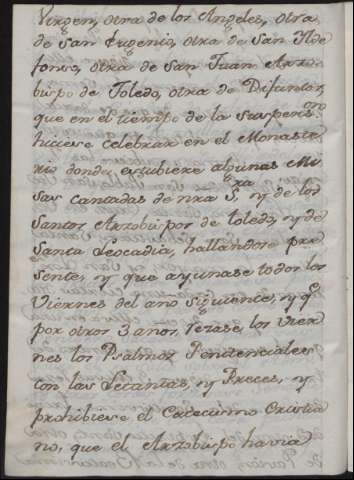 Virgen, otra de los Angeles, otra
de San Eugenio, otra de San Ilde
fonso, otra de San Juan Arzo
bispo de Toledo, otra de Difuntos,
que en el tiempo de la Suspens.on
hiciese celebrar en el Monaste
rio donde estubiere algunas Mi
sas cantadas de nra S.ra, y de los
Santos Arzobispos de toledo, y de
Santa Leocadia, hallandose pre
sente, y que ayunase todos los
Viernes del año siguiente, y q.e
por otros 3 años, rezase, los Vier
nes los Psalmos Penitenciales
con las Letanias, y Preces, y
prohibiese el Catecismo Cristia
no, que el Arzobispo havia